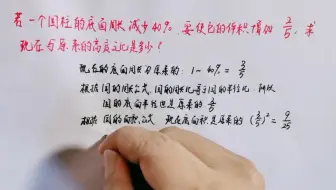 若一个圆柱的底面周长减少40%,要使它的体积增加 2/5,求
现在与原来的高度之比是多少?
现在的底面周长为原来的:1-40% = 3/5
根据圆的周长公式,圆的周长比等于圆的半径比,所以
圆的底面半径也是原来的 3/5
根据 圆的面积公式 现在底面积是原来的 (3/5)² = 9/25